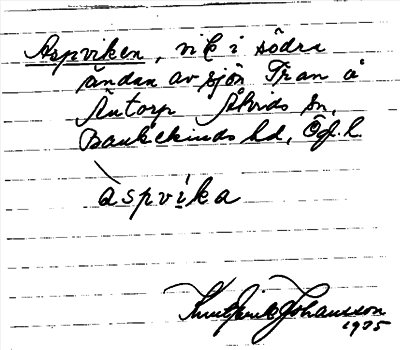 Aspviken, vik i södra
ändan av sjön Tran å
Äntorp Åtvids sn,
Bankekinds hd, Ög.l.
àspvika
Knut Erik Johansson
1975